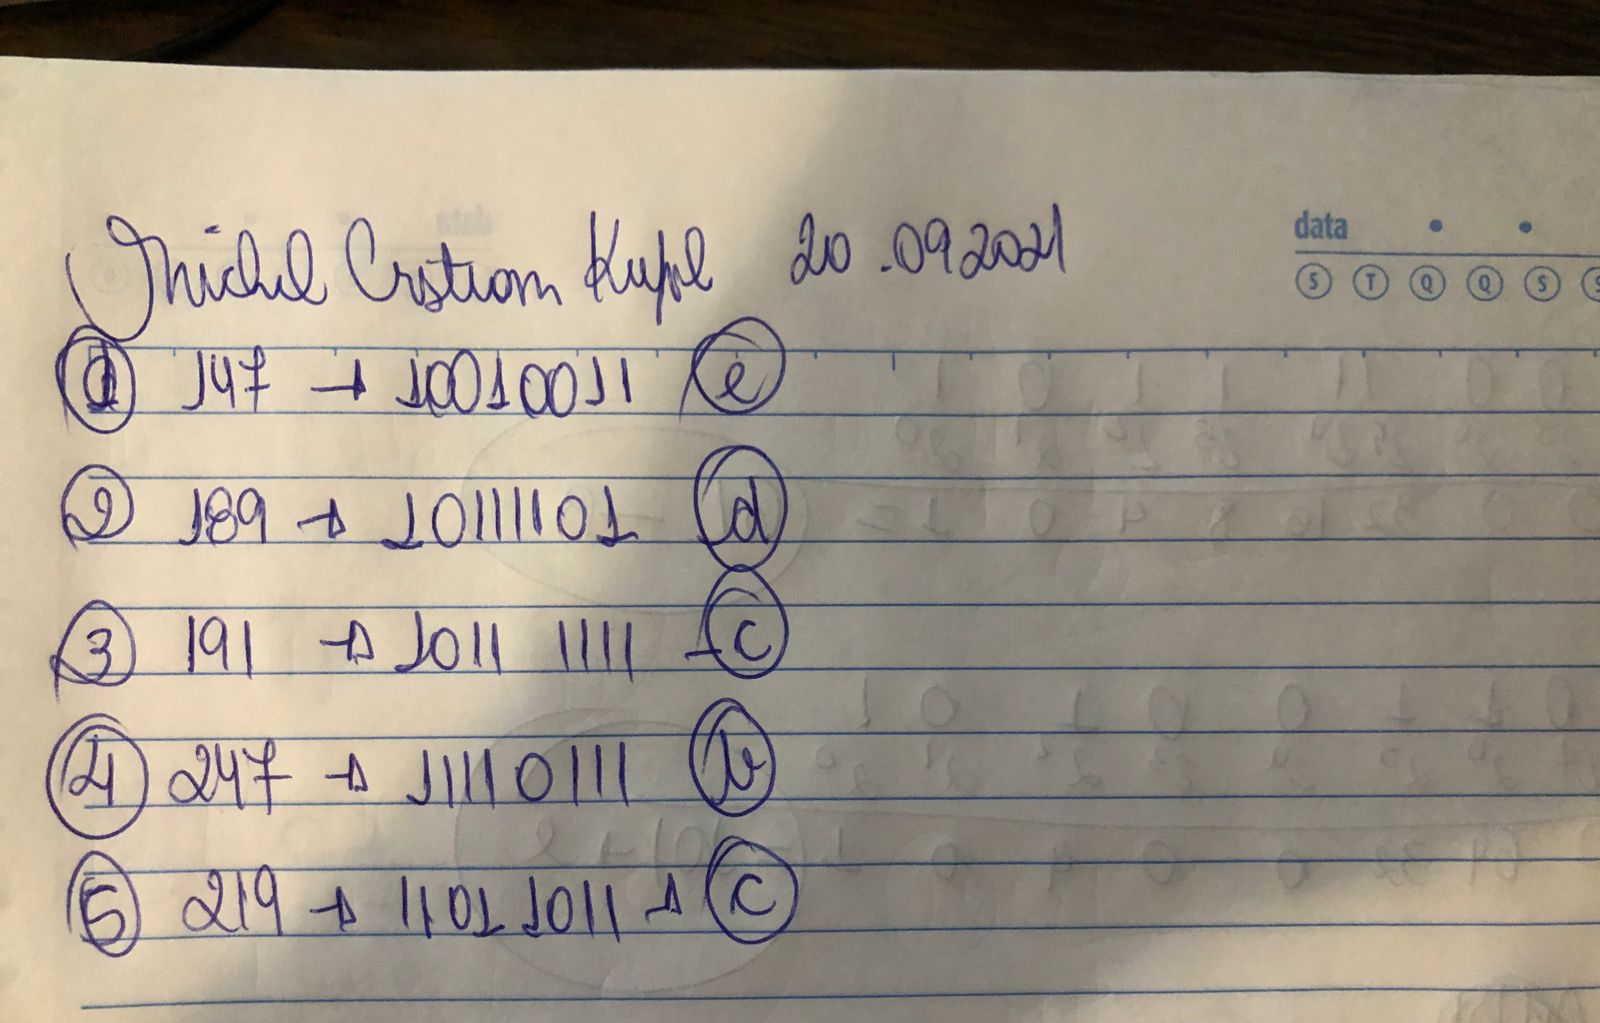 Michel Cristiam Kupfel 20.092021
data
S T Q Q S S
1 147 → 10010011 e
2 189 → 10111101 d
3 191 → 1011 1111 - c
4 247 → 11110111 b
5 219 → 1101 1011 → c